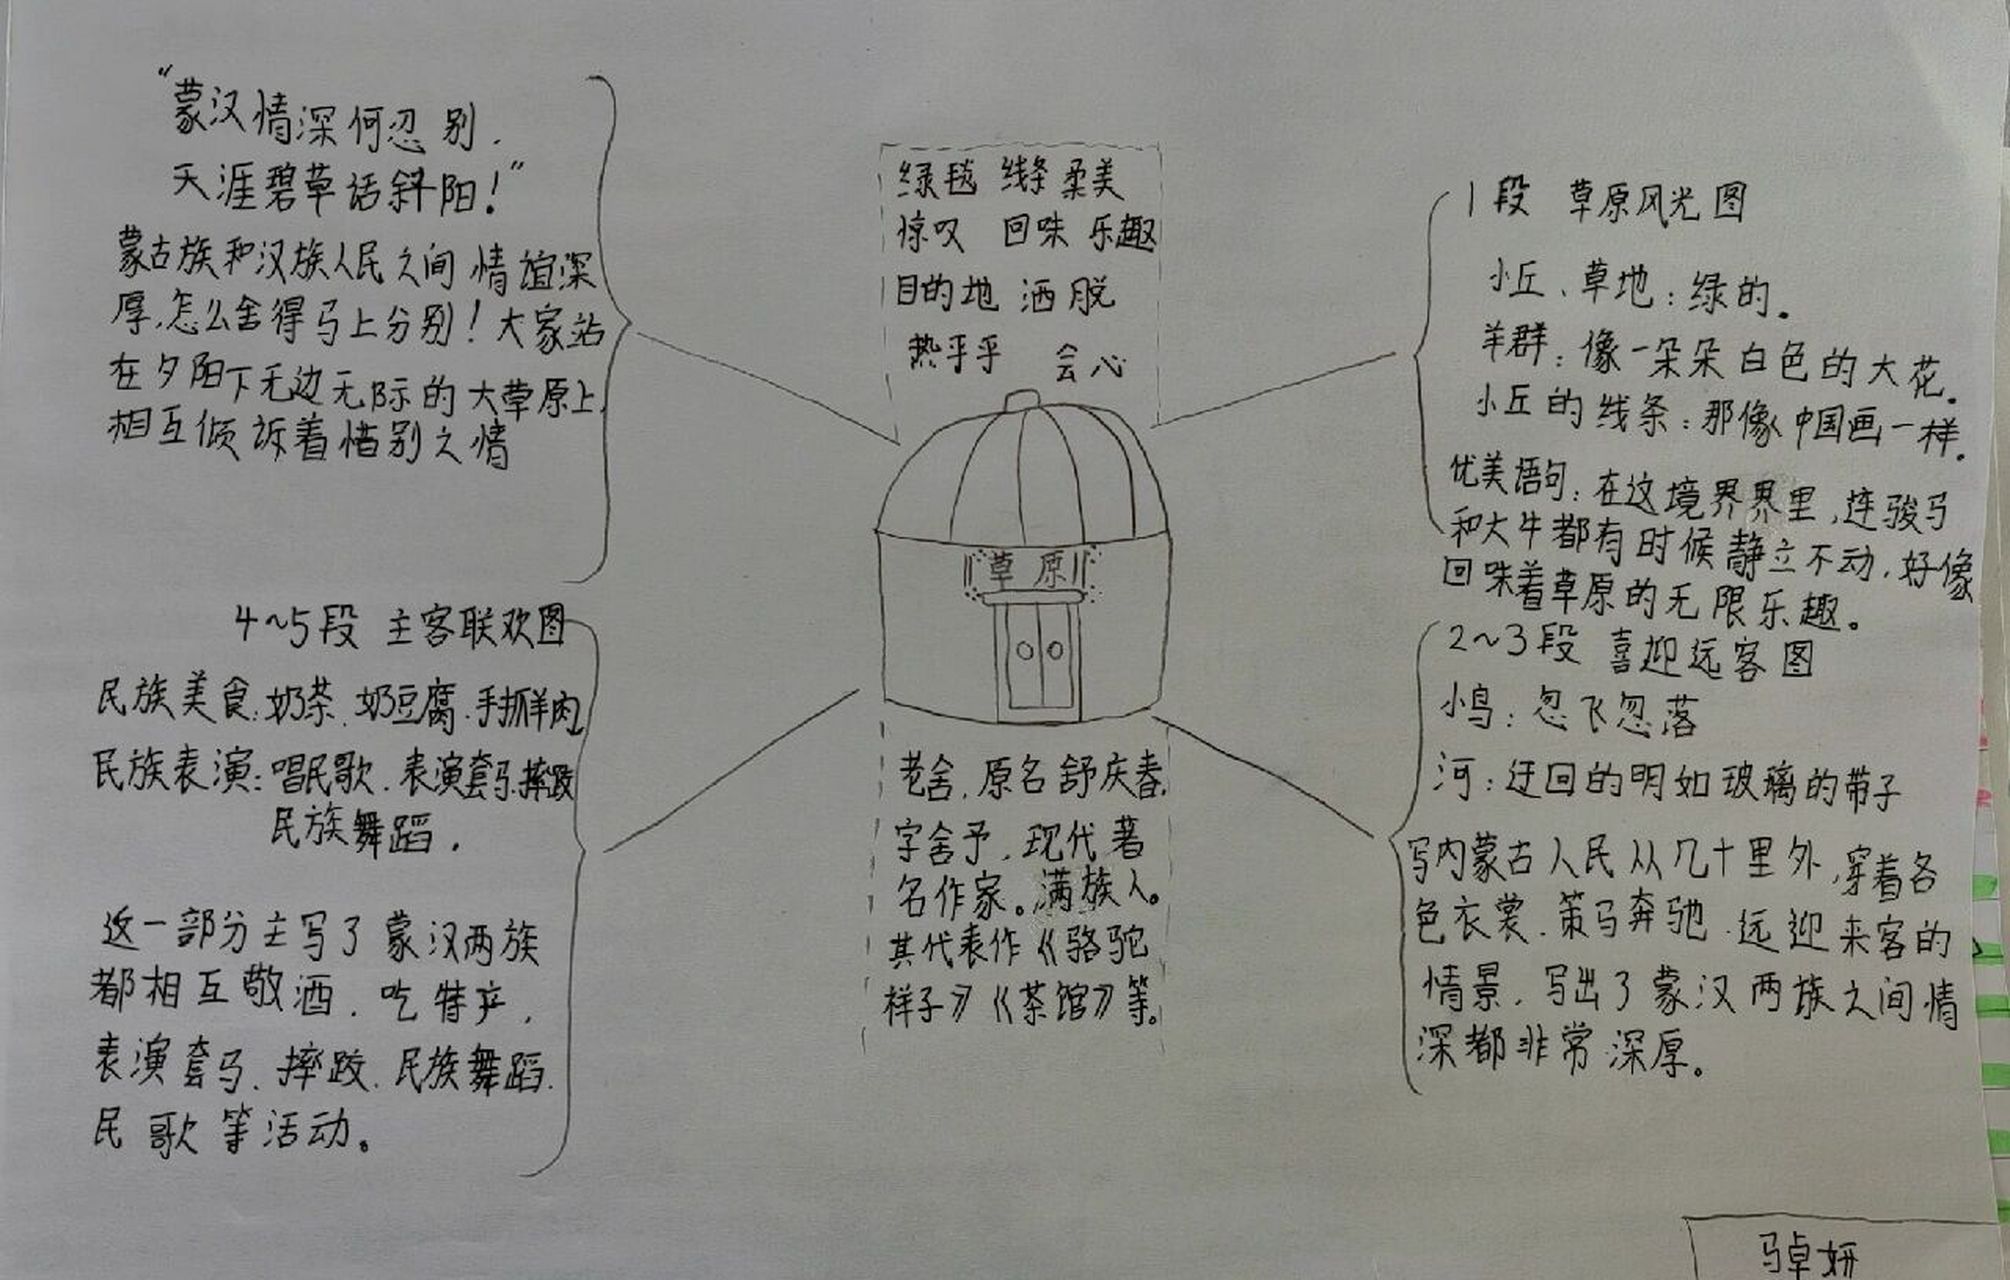 “蒙汉情深何忍别.
天涯碧草话斜阳!”
蒙古族和汉族人民之间情谊深
厚,怎么舍得马上分别!大家站
在夕阳下无边无际的大草原上,
相互倾诉着惜别之情
4~5段 主客联欢图
民族美食:奶茶.奶豆腐.手抓羊肉
民族表演:唱民歌.表演套马.摔跤
民族舞蹈.
这一部分主写了蒙汉两族
都相互敬酒.吃特产,
表演套马.摔跤.民族舞蹈.
民歌等活动。
绿毯 线条 柔美
惊叹 回味 乐趣
目的地 洒脱
热乎乎 会心
草原
老舍.原名舒庆春,
字舍予.现代著
名作家。满族人。
其代表作《骆驼
样子》《茶馆》等。
1段 草原风光图
小丘、草地:绿的。
羊群:像一朵朵白色的大花。
小丘的线条:那像中国画一样。
优美语句:在这境界界里,连骏马
和大牛都有时候静立不动.好像
回味着草原的无限乐趣。
2~3段 喜迎远客图
小鸟:忽飞忽落
河:迂回的明如玻璃的带子
写内蒙古人民从几十里外,穿着各
色衣裳.策马奔驰.远迎来客的
情景.写出了蒙汉两族之间情
深都非常深厚。
马卓妍